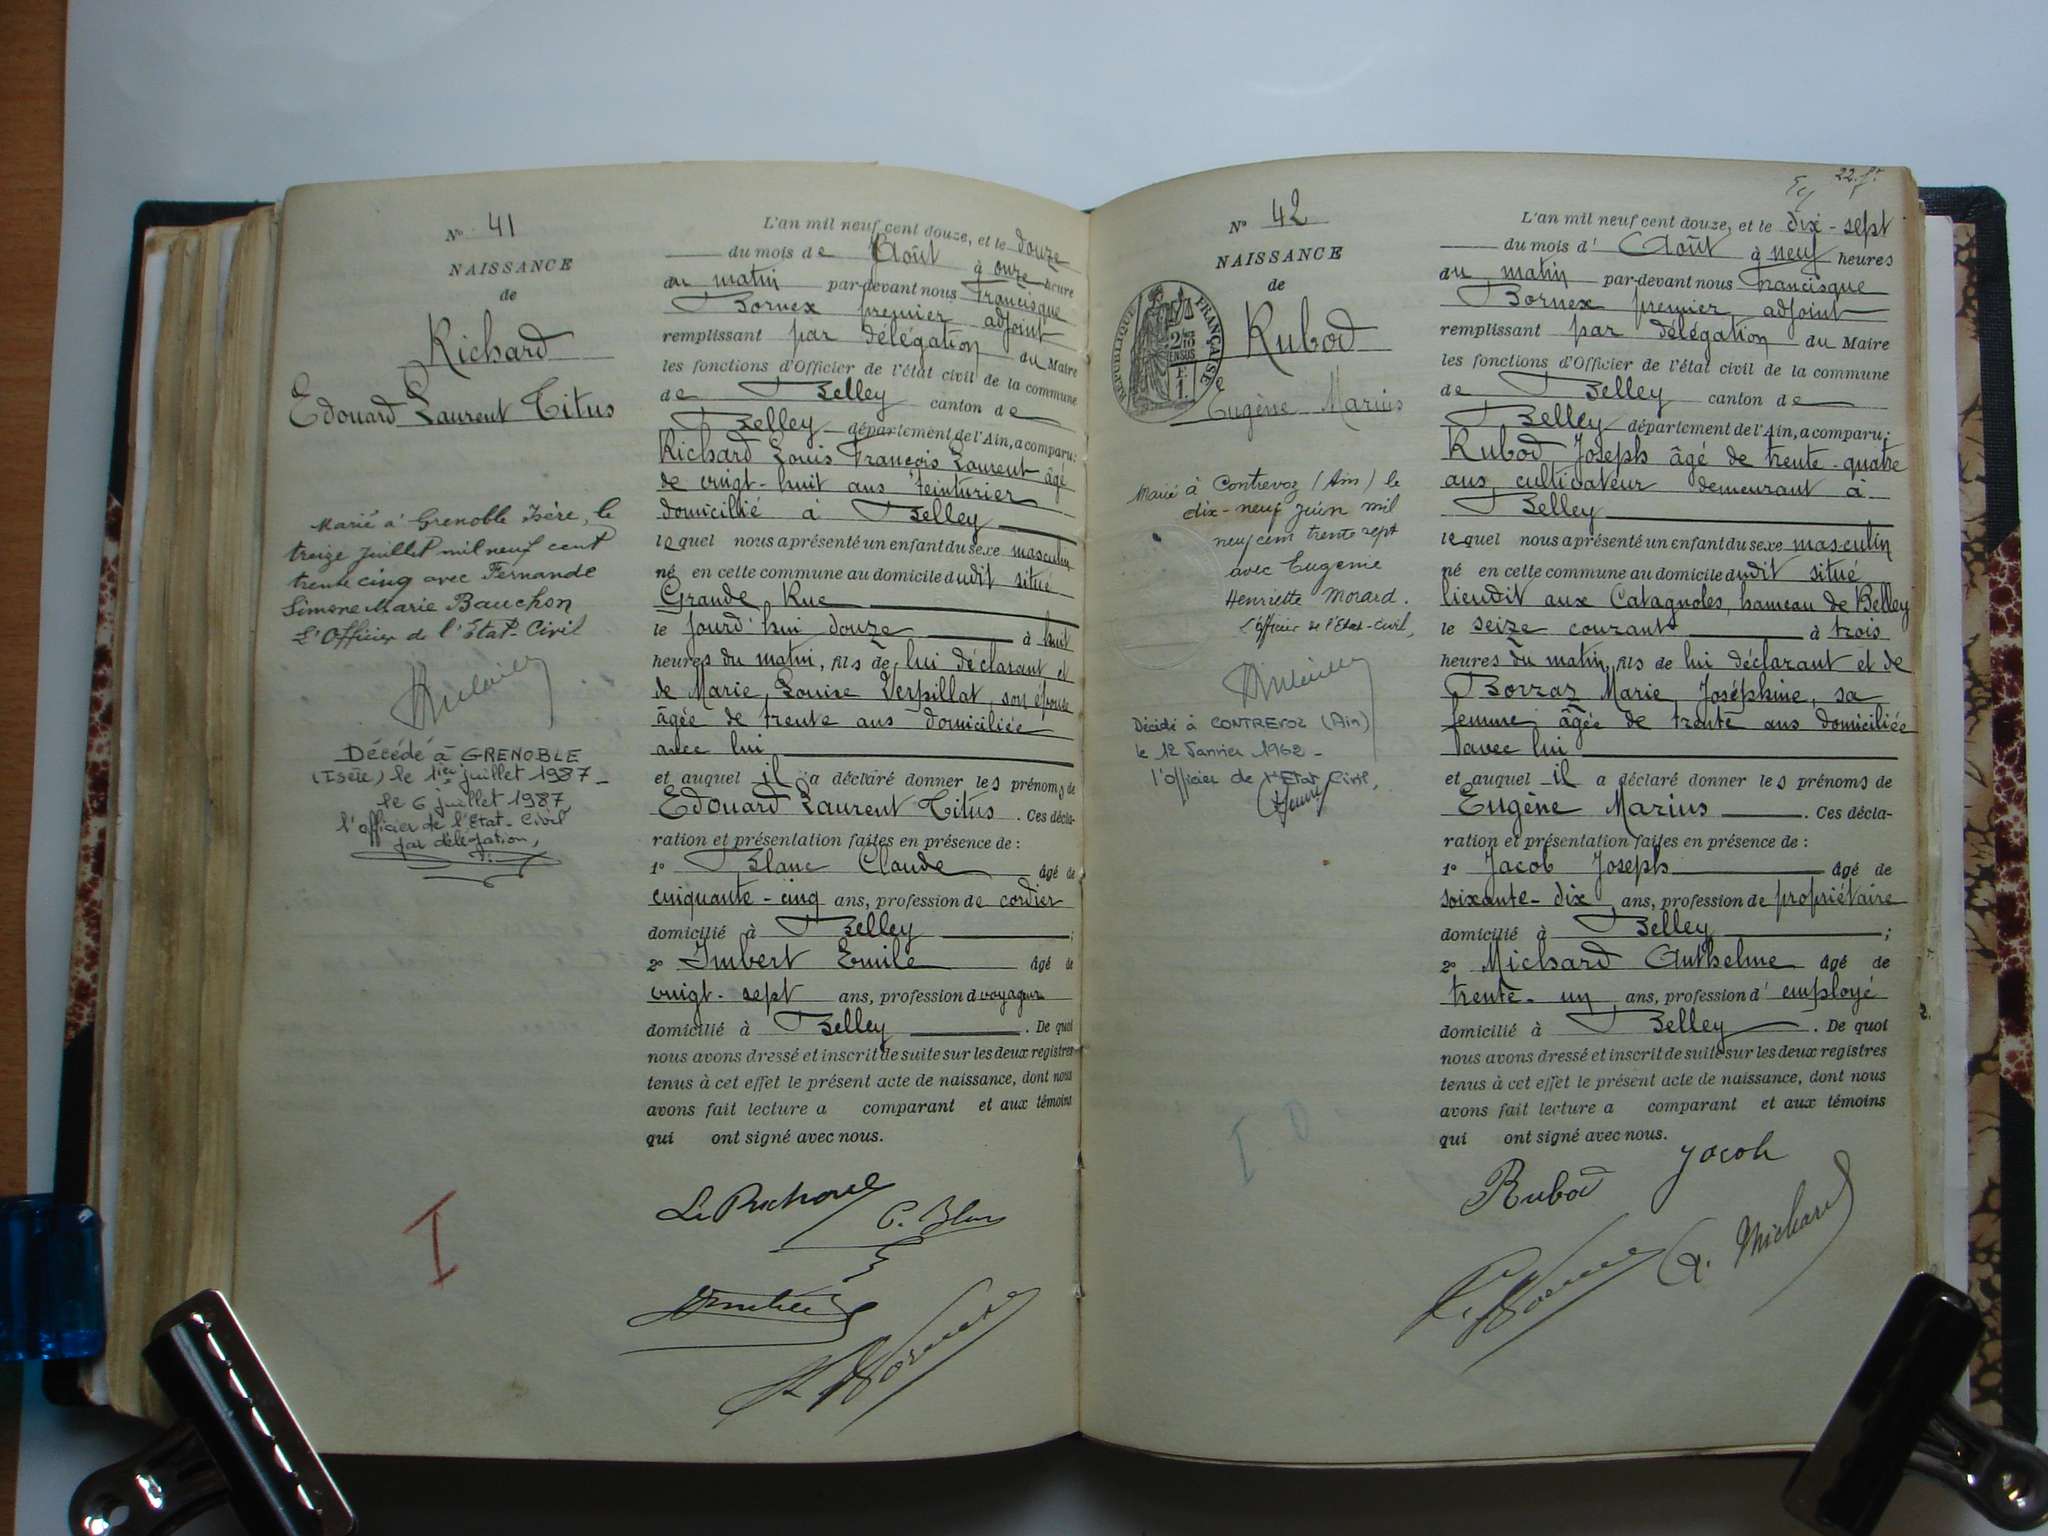 N° 41
NAISSANCE
de
Richard
Edouard Laurent Titus
Marié à Grenoble Isère, le
treize juillet mil neuf cent
trente cinq avec Fernande
Simone Marie Bauchon
L'Officier de l'Etat-Civil
Décédé à GRENOBLE
(Isère) le 1er juillet 1987 -
le 6 juillet 1987,
l'officier de l'Etat-Civil
par délégation,
I
L'an mil neuf cent douze, et le douze
du mois de Août à onze heure
du matin par-devant nous Francisque
Bornex premier adjoint
remplissant par délégation du Maire
les fonctions d'Officier de l'état civil de la commune
de Belley canton de
Belley département de l'Ain, a comparu:
Richard Louis François Laurent âgé
de vingt-huit ans teinturier
domicilié à Belley
lequel nous a présenté un enfant du sexe masculin
né en cette commune au domicile dudit situé
Grande Rue
le jourd'hui douze à huit
heures du matin, fils de lui déclarant et
de Marie Louise Verpillat, son épouse
âgée de trente ans domiciliée
avec lui
et auquel il a déclaré donner les prénoms de
Edouard Laurent Titus. Ces décla-
ration et présentation faites en présence de :
1° Blanc Claude âgé de
cinquante-cinq ans, profession de cordier
domicilié à Belley ;
2° Imbert Emile âgé de
vingt-sept ans, profession d voyageur
domicilié à Belley . De quoi
nous avons dressé et inscrit de suite sur les deux registres
tenus à cet effet le présent acte de naissance, dont nous
avons fait lecture a comparant et aux témoins
qui ont signé avec nous.
C. Blanc
22. ft
N° 42
NAISSANCE
de
RÉPUBLIQUE FRANÇAISE
Rubod
Eugène Marius
Marié à Contrevoz (Ain) le
dix-neuf juin mil
neuf cent trente sept
avec Eugenie
Henriette Morard.
L'officier de l'Etat-Civil,
Décédé à CONTREVOZ (Ain)
le 12 Janvier 1962 -
l'officier de l'Etat Civil,
I D
L'an mil neuf cent douze, et le dix-sept
du mois d' Août à neuf heures
du matin par-devant nous Francisque
Bornex premier adjoint
remplissant par délégation du Maire
les fonctions d'Officier de l'état civil de la commune
de Belley canton de
Belley département de l'Ain, a comparu:
Rubod Joseph âgé de trente-quatre
ans, cultivateur demeurant à
Belley
lequel nous a présenté un enfant du sexe masculin
né en cette commune au domicile dudit situé
lieudit aux Catagnoles, hameau de Belley
le seize courant à trois
heures du matin, fils de lui déclarant et de
Borraz Marie Joséphine, sa
femme âgée de trente ans domiciliée
avec lui
et auquel il a déclaré donner les prénoms de
Eugène Marius . Ces décla-
ration et présentation faites en présence de :
1° Jacob Joseph âgé de
soixante-dix ans, profession de propriétaire
domicilié à Belley ;
2° Michard Anthelme âgé de
trente-un ans, profession d' employé
domicilié à Belley . De quoi
nous avons dressé et inscrit de suite sur les deux registres
tenus à cet effet le présent acte de naissance, dont nous
avons fait lecture a comparant et aux témoins
qui ont signé avec nous.
Rubod Jacob
A. Michard